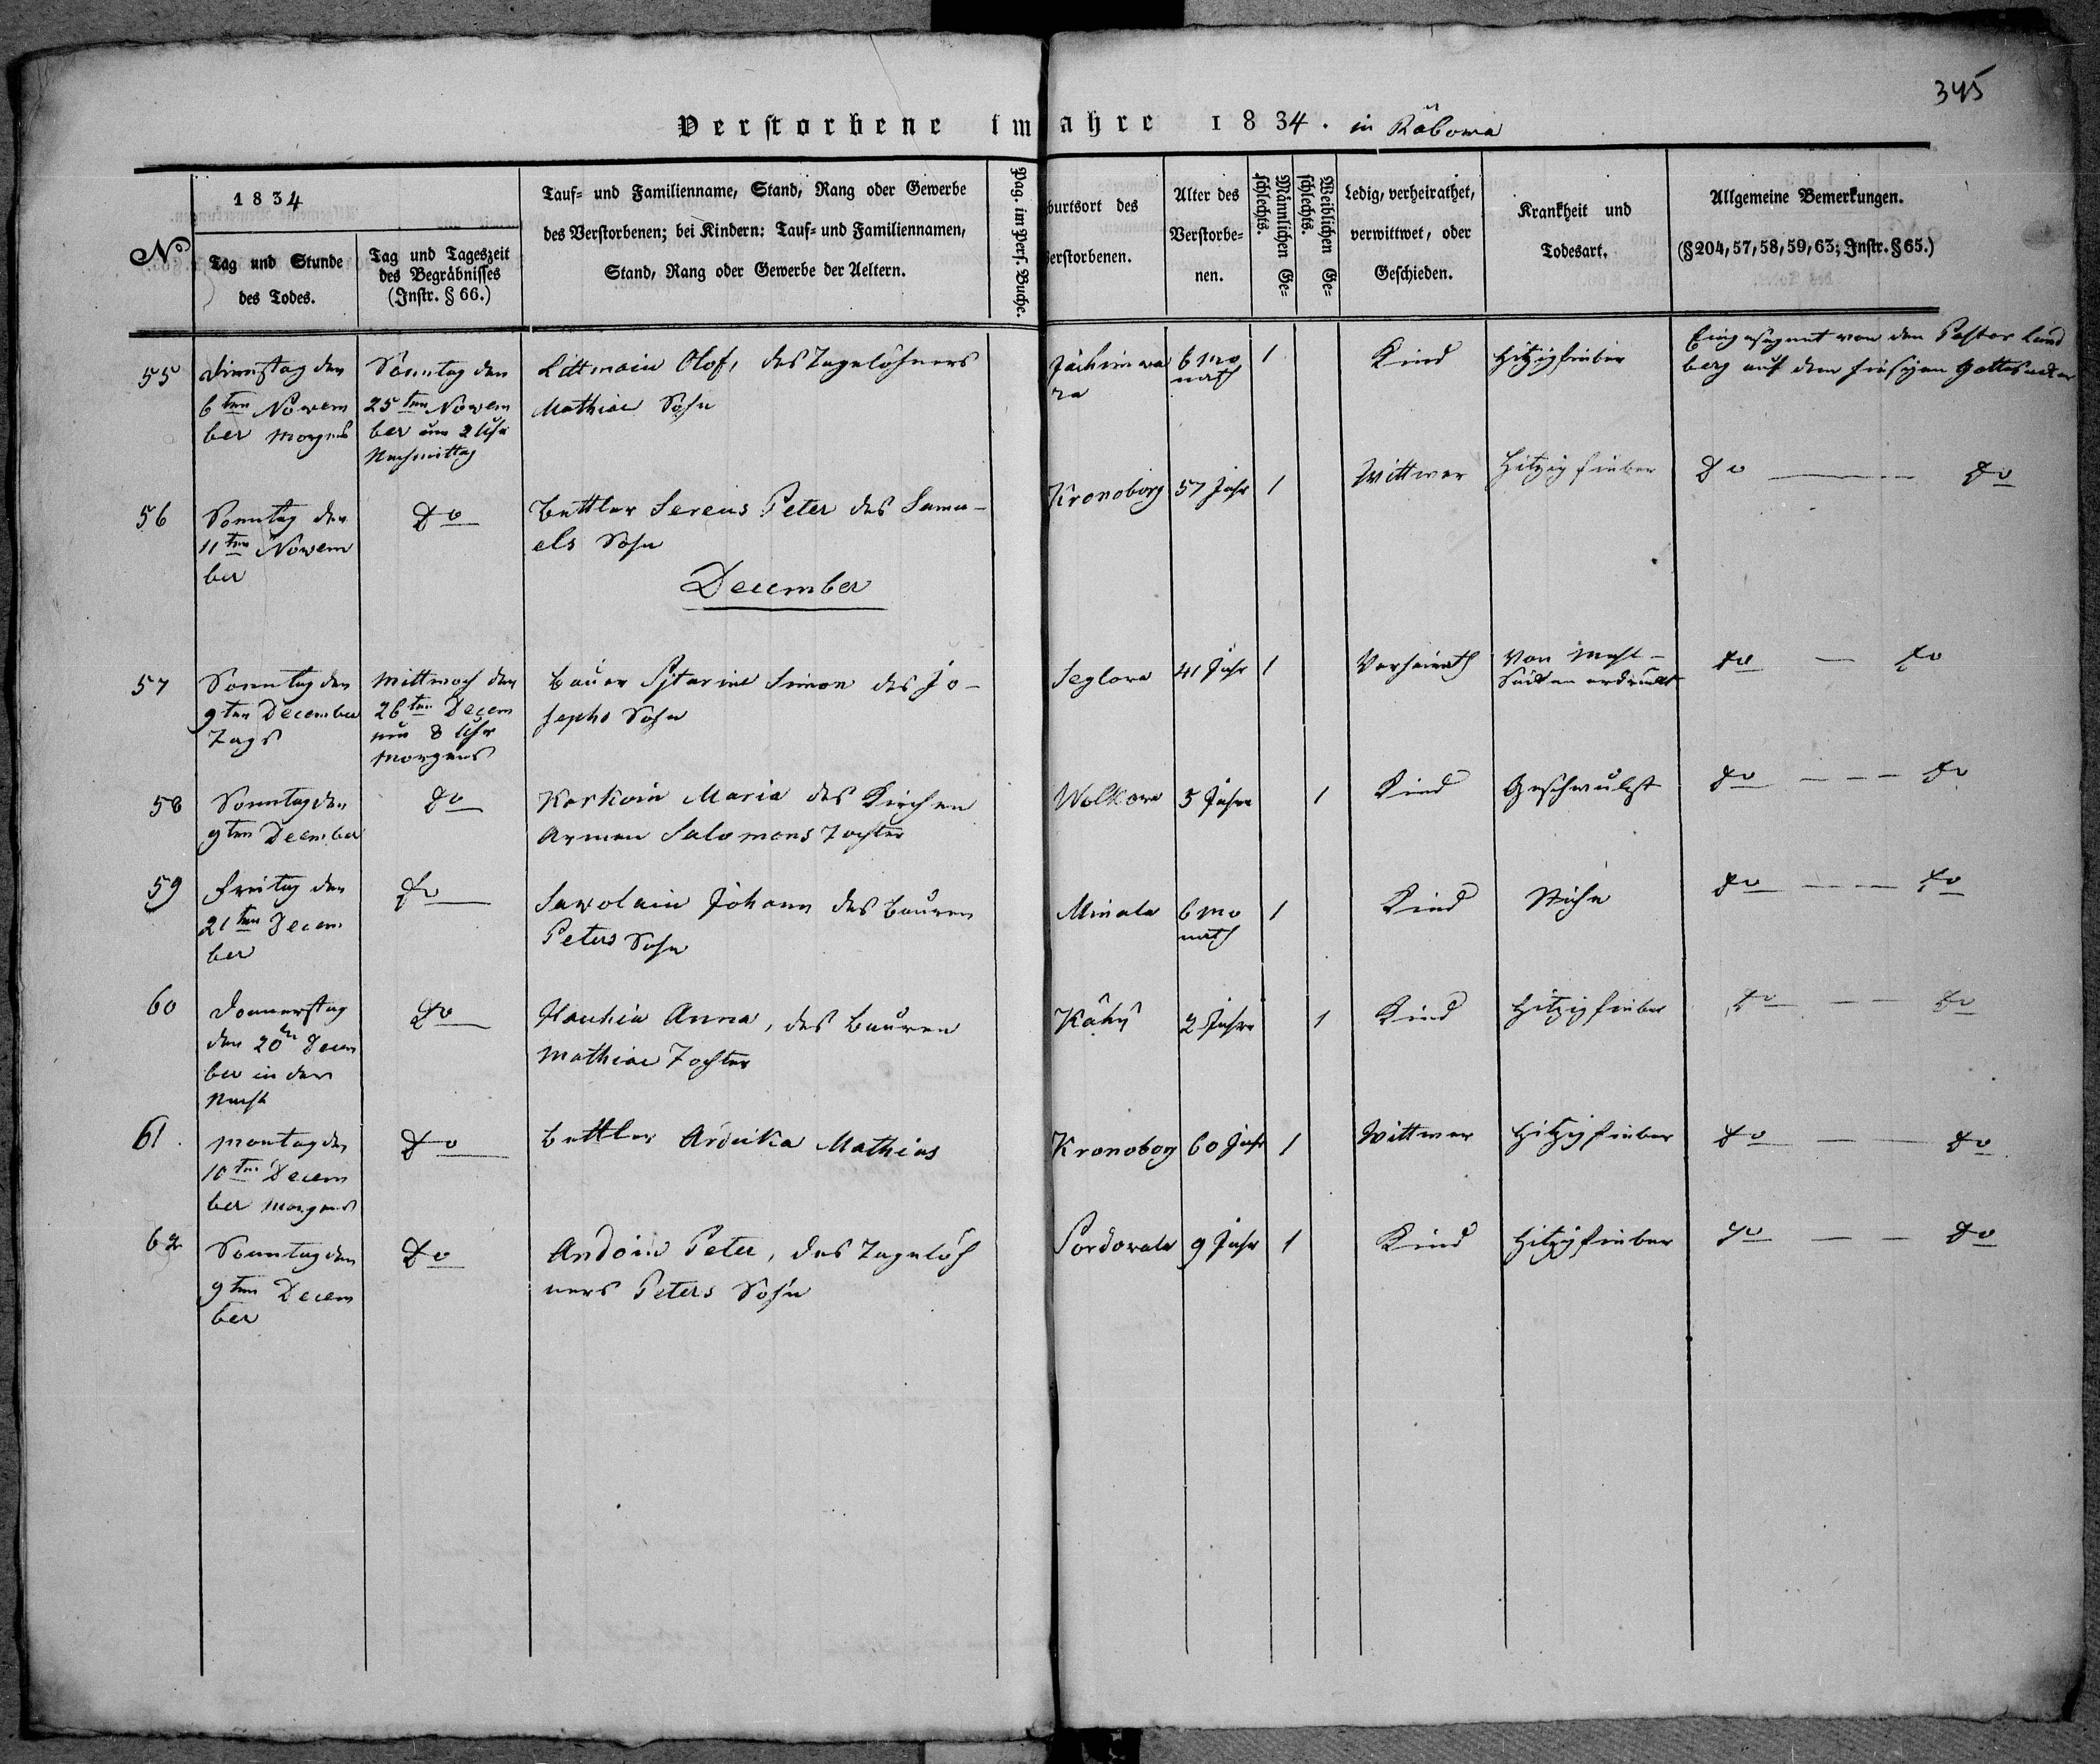 345
Verstorbene im Jahre 1834. in Räbowa
No
1834
Tag und Stunde
des Todes.
Tag und Tageszeit
des Begräbnisses
(Instr. § 66.)
Tauf= und Familienname, Stand, Rang oder Gewerbe
des Verstorbenen; bei Kindern: Tauf= und Familiennamen,
Stand, Rang oder Gewerbe der Aeltern.
Pag. im Pers. Buche.
burtsort des
Verstorbenen.
Alter des
Verstorbe=
nen.
Männlichen Ge=
schlechts.
Weiblichen Ge=
schlechts.
Ledig, verheirathet,
verwittwet, oder
Geschieden.
Krankheit und
Todesart.
Allgemeine Bemerkungen.
(§204,57,58,59,63; Instr. §65.)
55
Dienstag den
6ten Novem
ber Morgens
Sonntag den
25ten Novem
ber um 2 Uhr
Nachmittag
Littmain Olof, des Tagelöhners
Mathiae Sohn
ra
6 Mo
nath
1
Kind
Hitzigfieber
Eingesegnet von den Pastor Lund
berg auf dem hiesigen Gottesacker
56
Sonntag den
11ten Novem
ber
Do
Bettler Sereus Peter des Samu-
els Sohn
Kronoborg
57 Jahr
1
Wittwer
Hitzigfieber
Do Do
December
57
Sonntag den
9ten December
Tags
Mittwoch den
26ten Decem
um 8 Uhr
Morgens
Bauer Simon des Jo-
sephs Sohn
Seglora
41 Jahr
1
Verheirath
Von Mehl-
Do Do
58
Sonntag den
9ten December
Do
Korkoin Maria des Kirchen
Armen Salomons Tochter
Wolkowa
5 Jahre
1
Kind
Geschwulst
Do Do
59
Freitag den
21ten Decem
ber
Do
Sawolain Johann des Bauren
Peters Sohn
Miinala
6 Mo
nath
1
Kind
Do Do
60
Donnerstag
den 20ten Decem
ber in der
Nacht
Do
Haukia Anna, des Bauren
Mathiae Tochter
Kähy
2 Jahre
1
Kind
Hitzigfieber
Do Do
61.
Montag den
10ten Decem
ber Morgens
Do
Bettler Arduika Mathias
Kronoborg
60 Jahr
1
Wittwer
Hitzigfieber
Do Do
62
Sonntag den
9ten Decem
ber
Do
Andoin Peter, des Tagelöh
ners Peters Sohn
Sordowala
9 Jahr
1
Kind
Hitzigfieber
Do Do